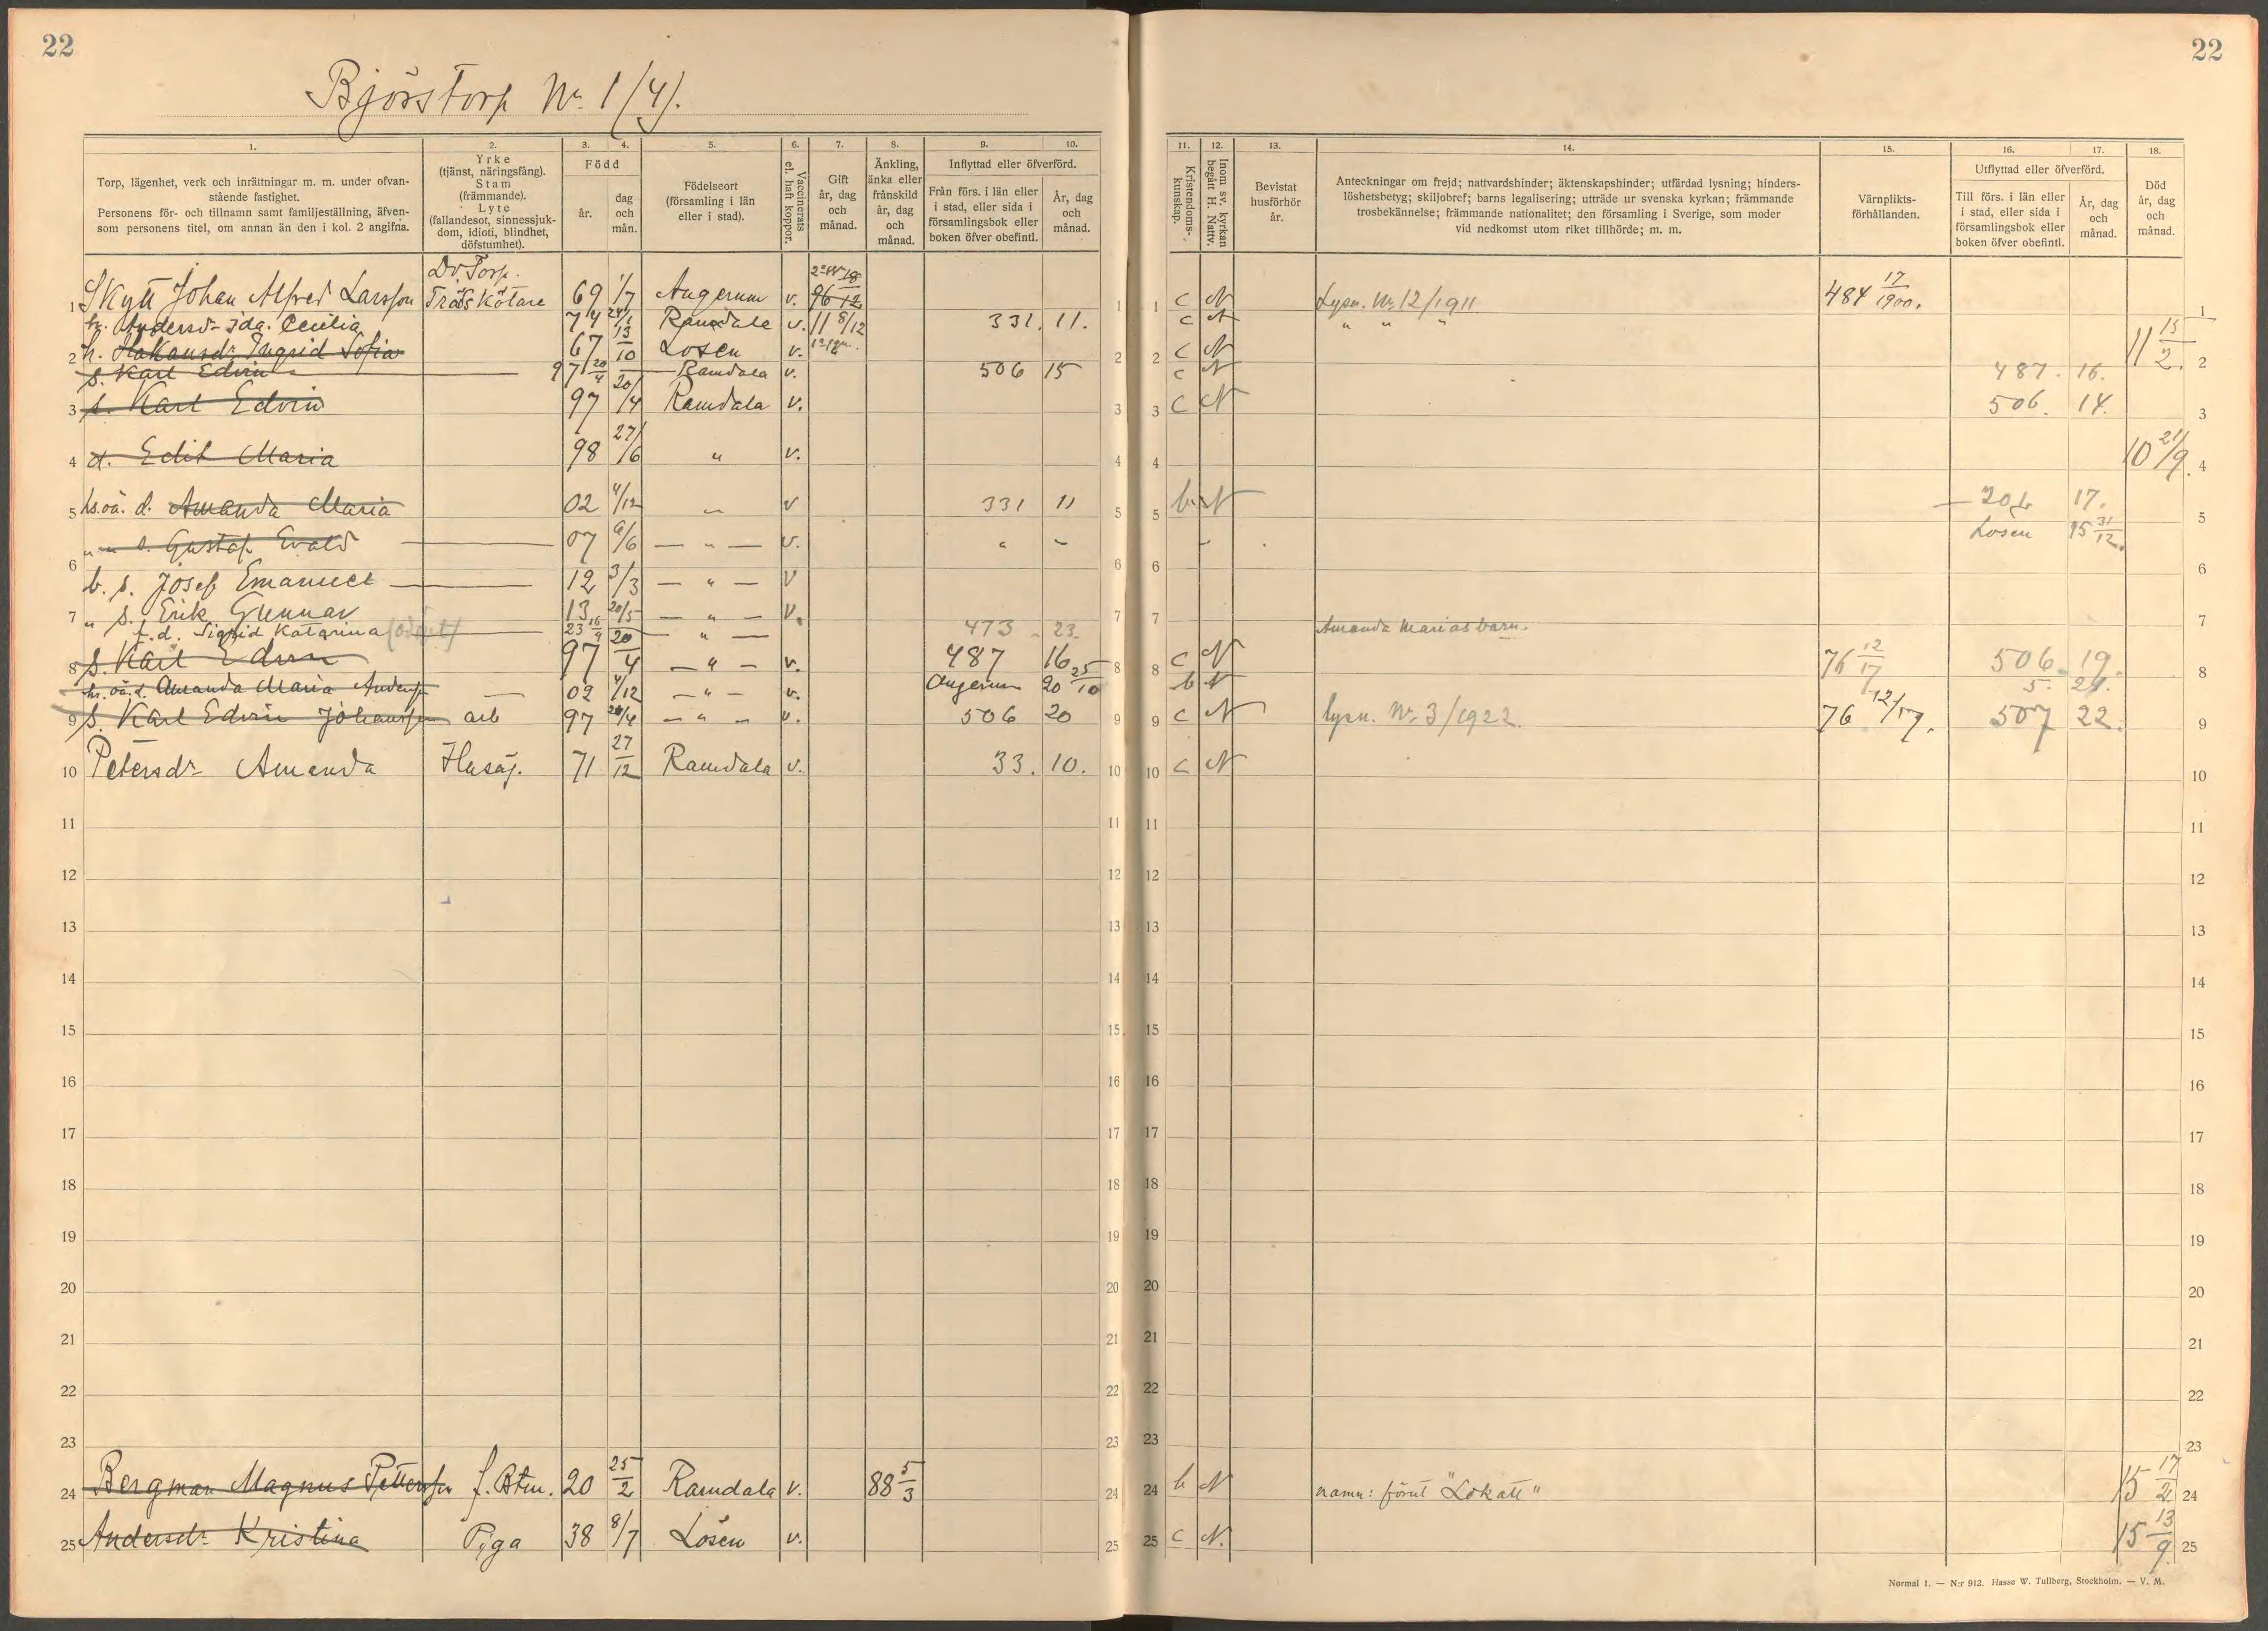 22
22
Björstorp No. 1 (4).
1. 2. 3. 4. 5. 6. 7. 8. 9. 10.
Torp, lägenhet, verk och inrättningar m. m. under ofvan-
stående fastighet.
Personens för- och tillnamn samt familjeställning, äfven-
som personens titel, om annan än den i kol. 2 angifna.
Yrke
(tjänst, näringsfång).
Stam
(främmande).
Lyte
(fallandesot, sinnessjuk-
dom, idioti, blindhet,
döfstumhet).
Född
år.
dag
och
mån.
Födelseort
(församling i län
eller i stad).
Vaccinerats
el. haft koppor.
Gift
år, dag
och
månad.
Änkling,
änka eller
frånskild
år, dag
och
månad.
Inflyttad eller öfverförd.
Från förs. i län eller
i stad, eller sida i
församlingsbok eller
boken öfver obefintl.
År, dag
och
månad.
11. 12. 13. 14. 15. 16. 17. 18.
Kristendoms-
kunskap.
Inom sv. kyrkan
begått H. Nattv.
Bevistat
husförhör
år.
Anteckningar om frejd; nattvardshinder; äktenskapshinder; utfärdad lysning; hinders-
löshetsbetyg; skiljobref; barns legalisering; utträde ur svenska kyrkan; främmande
trosbekännelse; främmande nationalitet; den församling i Sverige, som moder
vid nedkomst utom riket tillhörde; m. m.
Värnplikts-
förhållanden.
Utflyttad eller öfverförd.
Till förs. i län eller
i stad, eller sida i
församlingsbok eller
boken öfver obefintl.
År, dag
och
månad.
Död
år, dag
och
månad.
1 Skytt Johan Alfred Larsson 69 1/7 Augerum v. 96 C N Lysn. No 12/1911 484 17/1900.
h. Andersdr Ida Cecilia 74 24/1 Ramdala v. 11 8/12 331. 11. C N " " "
2 h. Håkansdr Ingrid Sofia 67 13/10 Lösen v. C N 11 15/2.
s. Karl Edvin 97 20/4 Ramdala v. 506 15 C N 487. 16.
3 s. Karl Edvin 97 20/4 Ramdala v. C N 506. 14.
4 d. Edit Maria 98 27/6 " v. 10 21/9.
5 hs. oä. d. Amanda Maria 02 4/12 " v 331 11 b N 17.
" " s. Gustaf Evald 07 9/6 " v. " Lösen 15 31/12.
6 b. s. Josef Emanuel 12 3/3 " v
7 " s. Erik Gunnar 13 20/5 " v.
f. d. Sigrid Katarina 23 16/9 " 473 23. Amanda Marias barn.
8 s. Karl Edvin 97 20/4 " v. 487 16 C N 76 12/17 506 19.
hs. oä. d. Amanda Maria Andersson 02 4/12 " v. Augerum 20 25/10 b N 5. 24.
9 s. Karl Edvin Johansson arb 97 20/4 " v. 506 20 C N lysn. No 3/1922 76 12/17. 507 22.
10 Petersdr Amanda Husäg. 71 27/12 Ramdala v. 33. 10. C N 10
11
12
13
14
15
16
17
18
19
20
21
22
23
24 Bergman Magnus Petersson f. Btm. 20 25/2 Ramdala v. 88 5/3 b N namn: förut "Lokatt" 15 17/2 24
25 Andersdr Kristina Piga 38 8/7 Lösen v. C N. 15 13/9. 25
Normal 1. — N:r 912. Hasse W. Tullberg, Stockholm. — V. M.